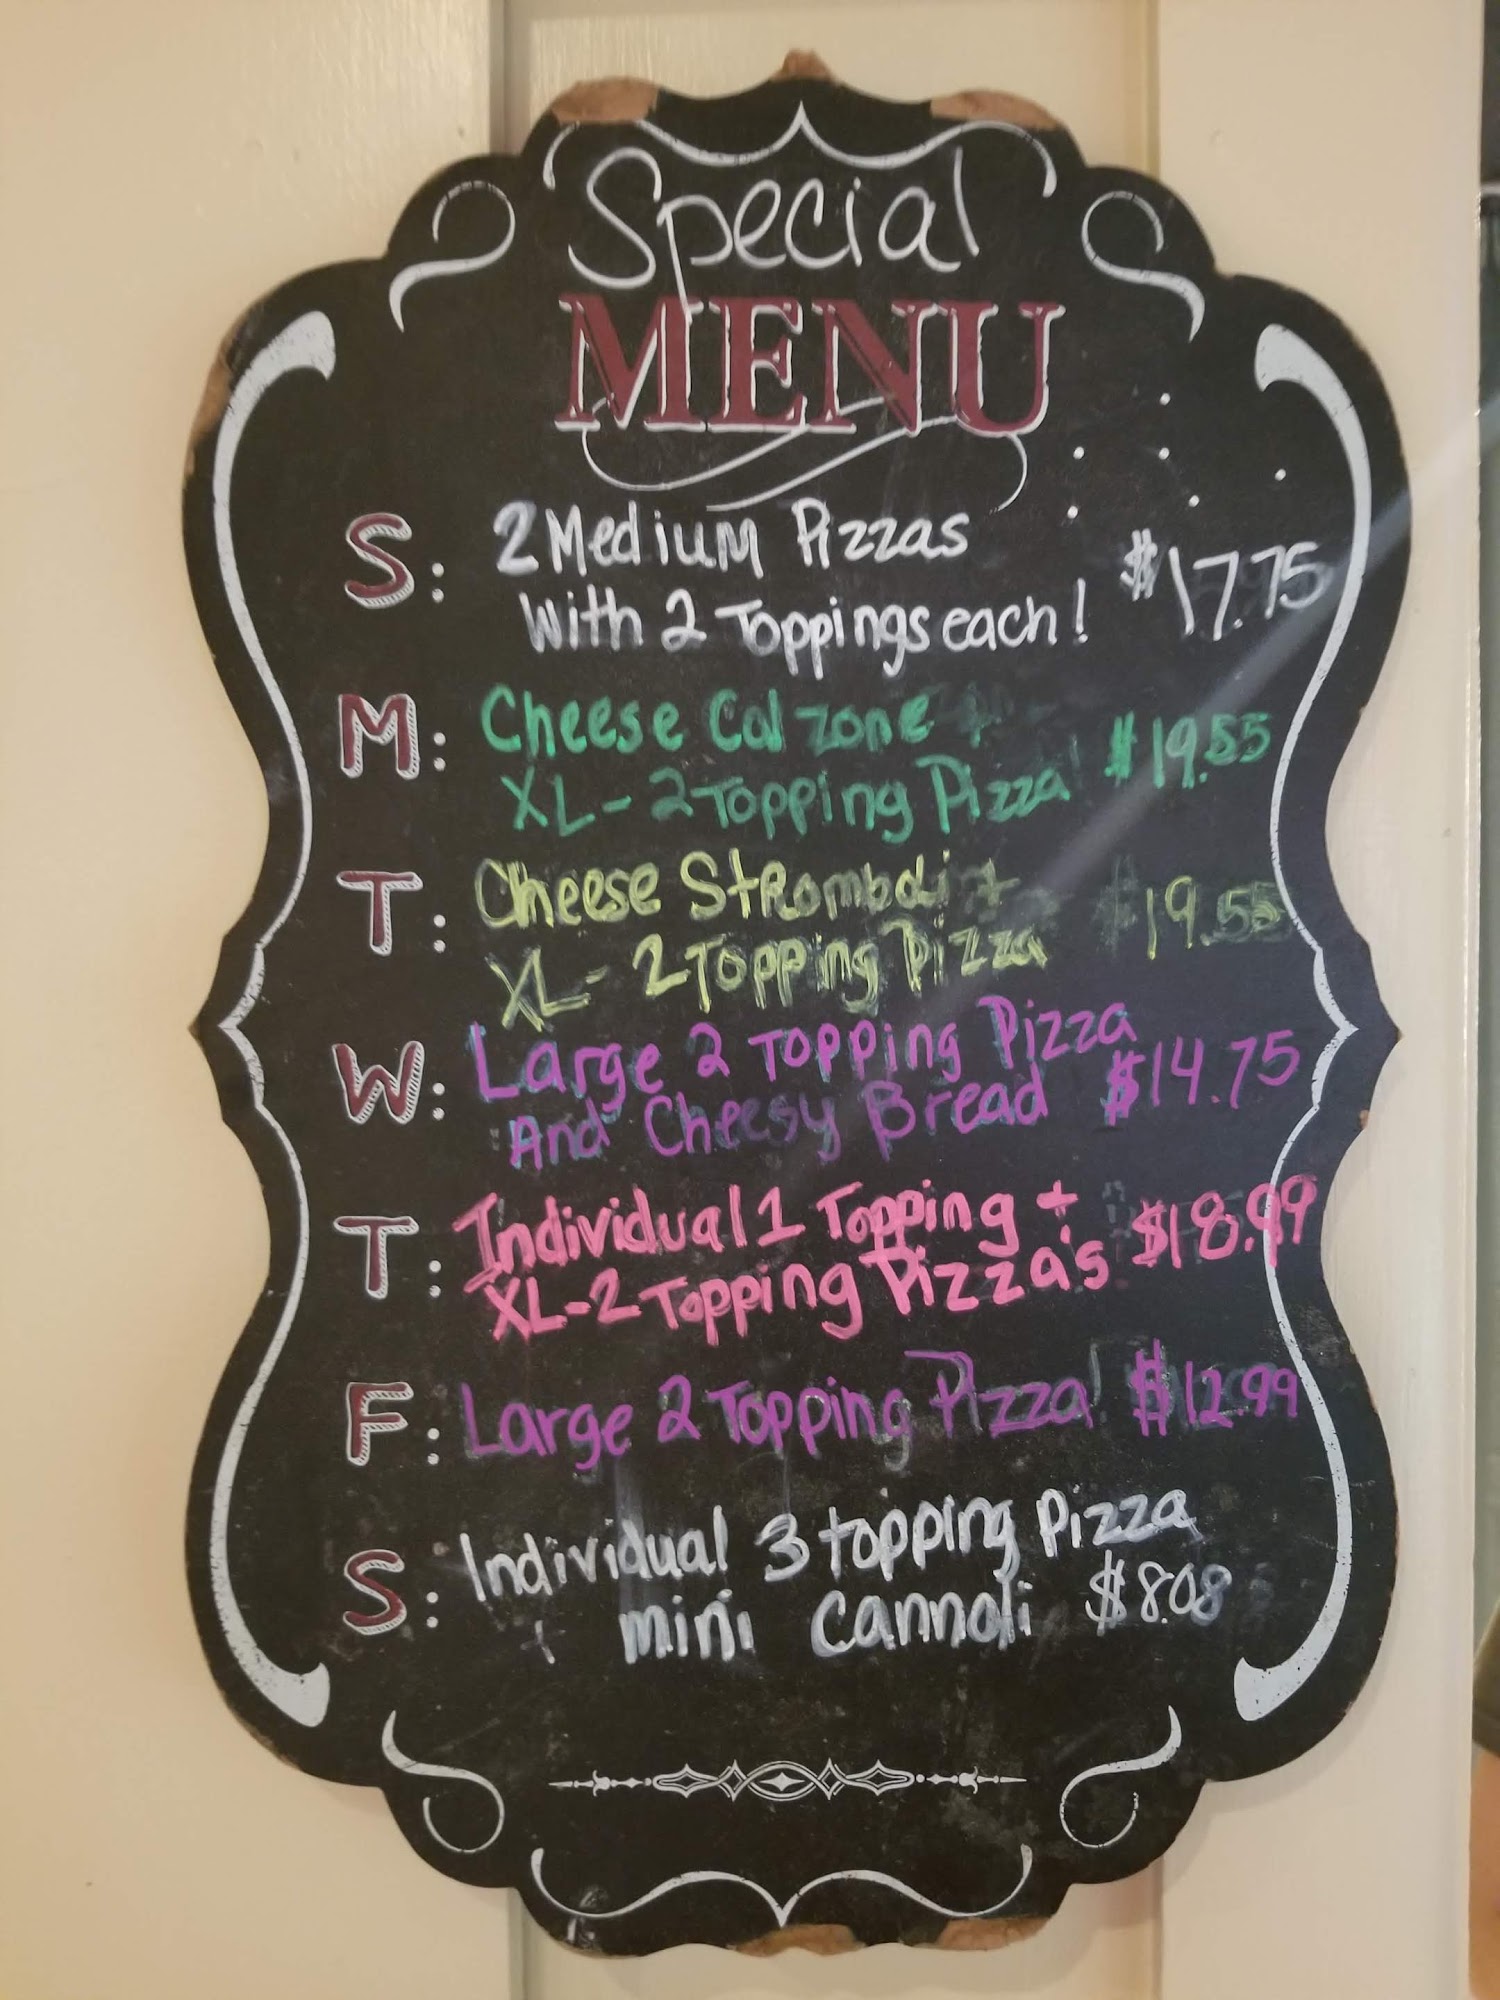 Special
MENU
S: 2 Medium Pizzas
With 2 Toppings each! $17.75
M: Cheese Calzone +
XL-2 Topping Pizza $19.55
T: Cheese Stromboli +
XL-2 Topping Pizza $19.55
W: Large 2 Topping Pizza
And Cheesy Bread $14.75
T: Individual 1 Topping +
XL-2 Topping Pizza's $18.99
F: Large 2 Topping Pizza! $12.99
S: Individual 3 topping Pizza
+ mini cannoli $8.08